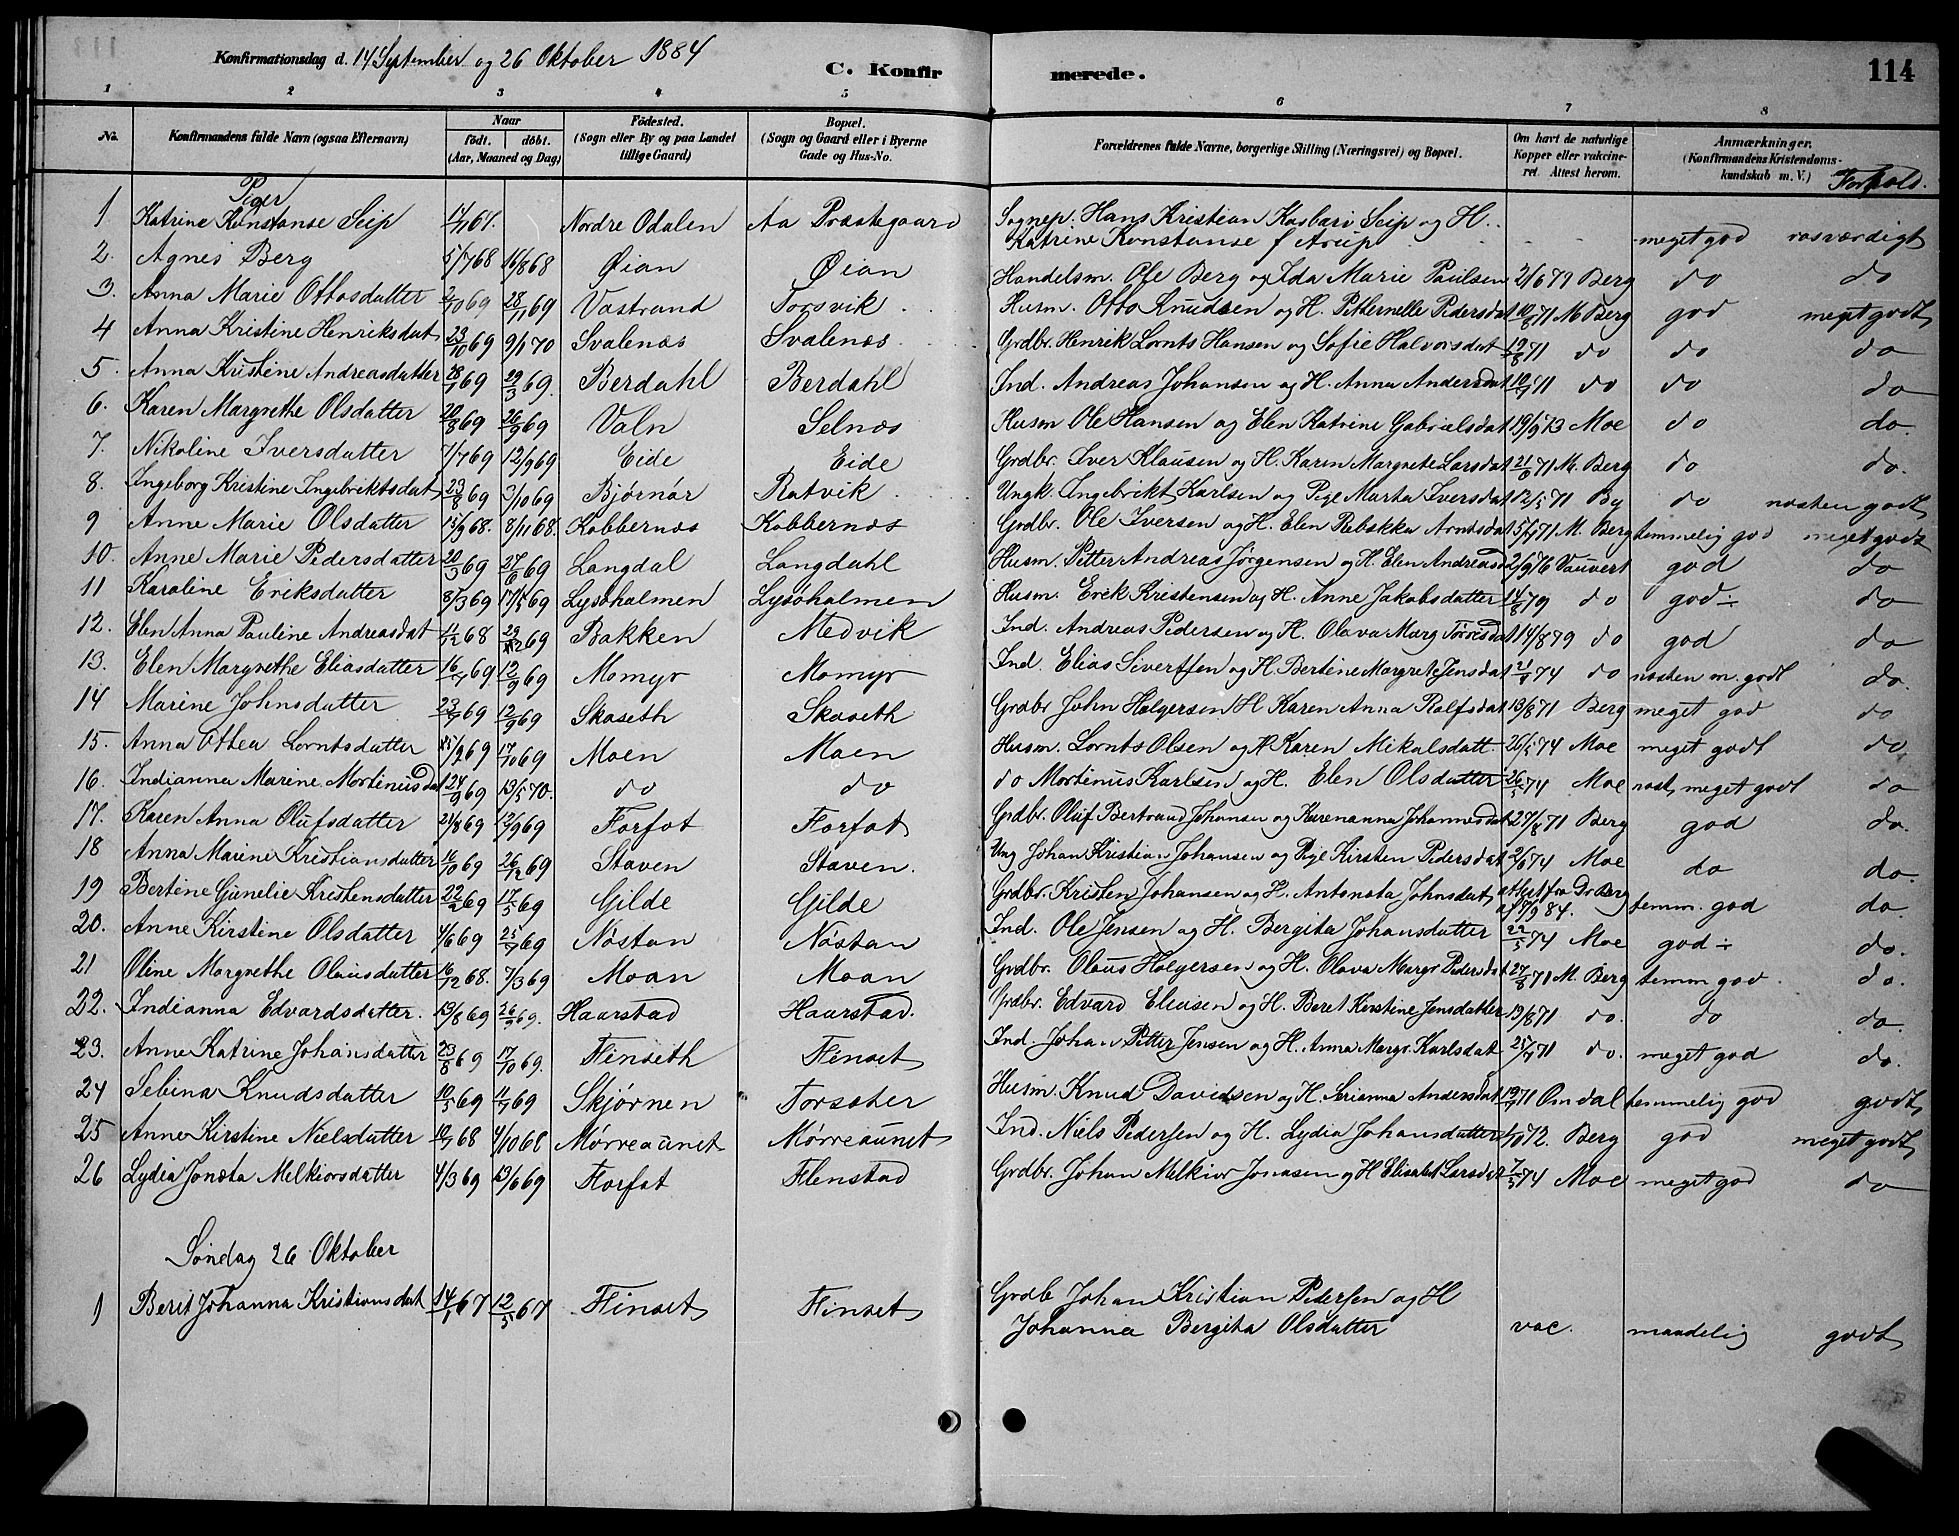 Konfirmationsdag d. 14 September og 26 Oktober 1884
C. Konfir merede.
114
1 2 3 4 5 6 7 8
No. Konfirmandens fulde Navn (ogsaa Efternavn) Naar født. døbt. (Aar, Maaned og Dag) Fødested. (Sogn eller By og paa Landet tillige Gaard) Bopæl. (Sogn og Gaard eller i Byerne Gade og Hus-No. Forældrenes fulde Navne, borgerlige Stilling (Næringsvei) og Bopæl. Om havt de naturlige Kopper eller vakcineret. Attest herom. Anmærkninger. (Konfirmandens Kristendomskundskab m. V.) Forhold.
Piger
1 Katrine Konstanse Seip Nordre Odalen Aa Præstegaard Sognep. Hans Kristian Seip og H. Katrine Konstanse f Arup meget god rosværdigt
2. Agnes Berg 5/768 16/868 Øian Øian Handelsm. Ole Berg og Ida Marie Paulsen 2/679 Berg do do
3. Anna Marie Ottosdatter 2/10 69 28/11 69 Vastrand Torsvik Husm. Otto Knudsen og H. Pethernelle Pedersdat 10/8 71 M Berg god meget godt
4 Anna Kristine Henriksdat 23/10 69 9/1 70 Svalenæs Svalenæs Grdbr. Henrik Lornts Hansen og Sofie Halvorsdat 19/8 71 do do do
5. Anna Kristine Andreasdatter 28/1 69 29/3 69. Berdahl Berdahl Ind. Andreas Johansen og H. Anna Andersdat do do do
6. Karen Margrethe Olsdatter 20/8 69 26/9 69 Valn Selnæs Husm Ole Hansen og Elen Katrine Gabrielsdat 19/9 73 Moe do do.
7. Nikoline Iversdatter 7/7 69 12/9 69 Eide Eide Grdbr. Iver Klausen og H. Karen Margrete Larsdat 21/8 71 M. Berg do do.
8. Ingeborg Kristine Ingebriktsdat 23/8 69 3/10 69 Bjørnør Ratvik Ungk. Ingebrikt Karlsen og Pige Marta Iversdat 12/5 71 By do næsten godt
9 Anne Marie Olsdatter 15/9 68. 8/11 68. Kobbernæs Kobbernæs Grdbr. Ole Iversen og H. Elen Rebekka Arntsdat 5/7 71 M. Berg temmelig god meget godt
10. Anne Marie Pedersdatter 20/3 69 27/6 69 Langdal Langdahl Husm. Petter Andreas Jørgensen og H. Elen Andreasd 2/9 76 Vauvert god do
11 Karoline Eriksdatter 8/3 69 17/5 69 Lysøholmen Lysøholmen Husm. Erik Kristensen og H. Anne Jakobsdatter 14/8 79 do god÷ do
12. Elen Anna Pauline Andreasdat 11/12 68 Bakken Medvik Ind. Andreas Pedersen og H. Olava Marg Torrisdat 14/8 79 do god do
13. Elen Margrethe Eliasdatter 16/7 69 12/9 69 Momyr Momyr Ind. Elias Sivertsen og H. Bertine Margrete Jensdat 74 do næsten m. godt do.
14 Marine Johnsdatter 23/7 69 12/9 69 Skaseth Skaseth Grdbr John Holgersen H Karen Anna Rolfsdat 13/8 71 Berg meget god do
15. Anna Ottea Lorntsdatter 17/10 69 Moen Moen Husm. Lornts Olsen og H Karen Mikalsdatt 26/5 74 Moe meget godt do
16. Indianna Marine Mortinusdat 24/9 69 13/5 70. do do do Mortinus Karlsen og H. Elen Olsdatter 26/5 74 Moe næst. meget godt do
17. Karen Anna Olufsdatter 21/8 69 12/9 69 Forfot Forfot Grdbr. Oluf Bertrand Johansen og Karenanna Johannesdat 27/8 71 Berg god do.
18 Anna Marine Kristiansdatter 16/10 69 26/12 69 Staven Staven. Ung Johan Kristian Johansen og Pige Kirsten Pedersdat 2/6 74 Moe do do.
19 Bertine Gunelie Kristensdatter 22/2 69 17/5 69 Gilde Gilde Grdbr. Kristen Johansen og H. Antoneta Johnsdat attest fra Dr Berg af 8/9 84. temm. god do
20. Anne Kirstine Olsdatter 4/6 69 25/7 69 Nøstan Nøstan Ind. Ole Jensen og H. Bergita Johansdatter 22/5 74 Moe god÷ do.
21 Oline Margrethe Olausdatter 16/12 68. 7/3 69 Moan Moan Grdbr. Olaus Holgersen og H. Olava Margr Pedersdat 27/8 71 M. Berg temm god do.
22. Indianna Edvardsdatter. 13/8 69 26/9 69. Haarstad Haarstad. Grdbr. Edvard Eliasen og H. Beret Kirstine Jensdatter 19/8 71 do. do do
23. Anne Katrine Johansdatter 23/8 69 17/10 69. Finseth Finset Ind. Johan Petter Jensen og H. Anna Margr. Karlsdat 25/7 71 do. meget god do.
24 Sebina Knudsdatter 10/5 69 11/7 69 Skjørnen Torsæter Husm. Knud Davidsen og H. Serianna Andersdat 19/7 71 Omdal temmelig god godt
25 Anne Kirstine Nielsdatter 10/7 68 4/10 68 Mørreaunet Mørreaunet Ind. Niels Pedersen og H. Lydia Johansdatter 72. Berg god meget godt
26 Lydia Jonæta Melkiorsdatter 4/3 69 13/6 69 Forfot Flenstad Grdbr. Johan Melkior Jonasen og H Elisabet Larsdat 7/5 74 Moe meget god do
Søndag 26 Oktober
1 Berit Johanna Kristiansdat 14/4 67 12/5 67 Finset Finset Grdb Johan Kristian Pedersen og H Johanna Bergita Olsdatter vac. maadelig godt